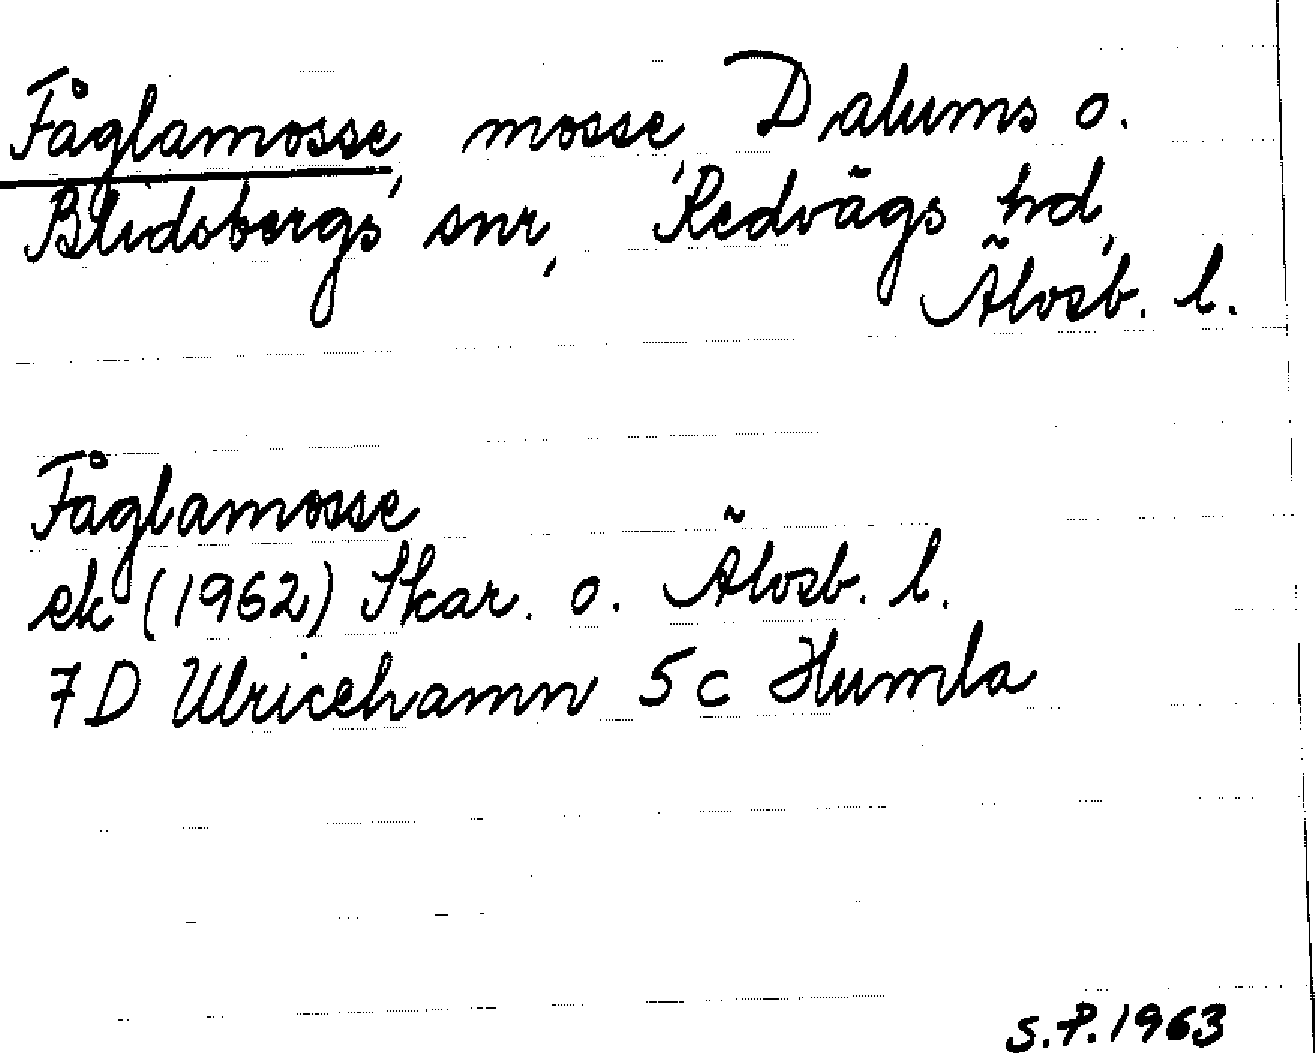 Fåglamosse, mosse, Dalums o.
Blidsbergs snr, Redvägs hd,
Älvsb. l.
Fåglamosse
ek (1962) Skar. o. Älvsb. l.
7D Ulricehamn 5c Humla
S.P. 1963